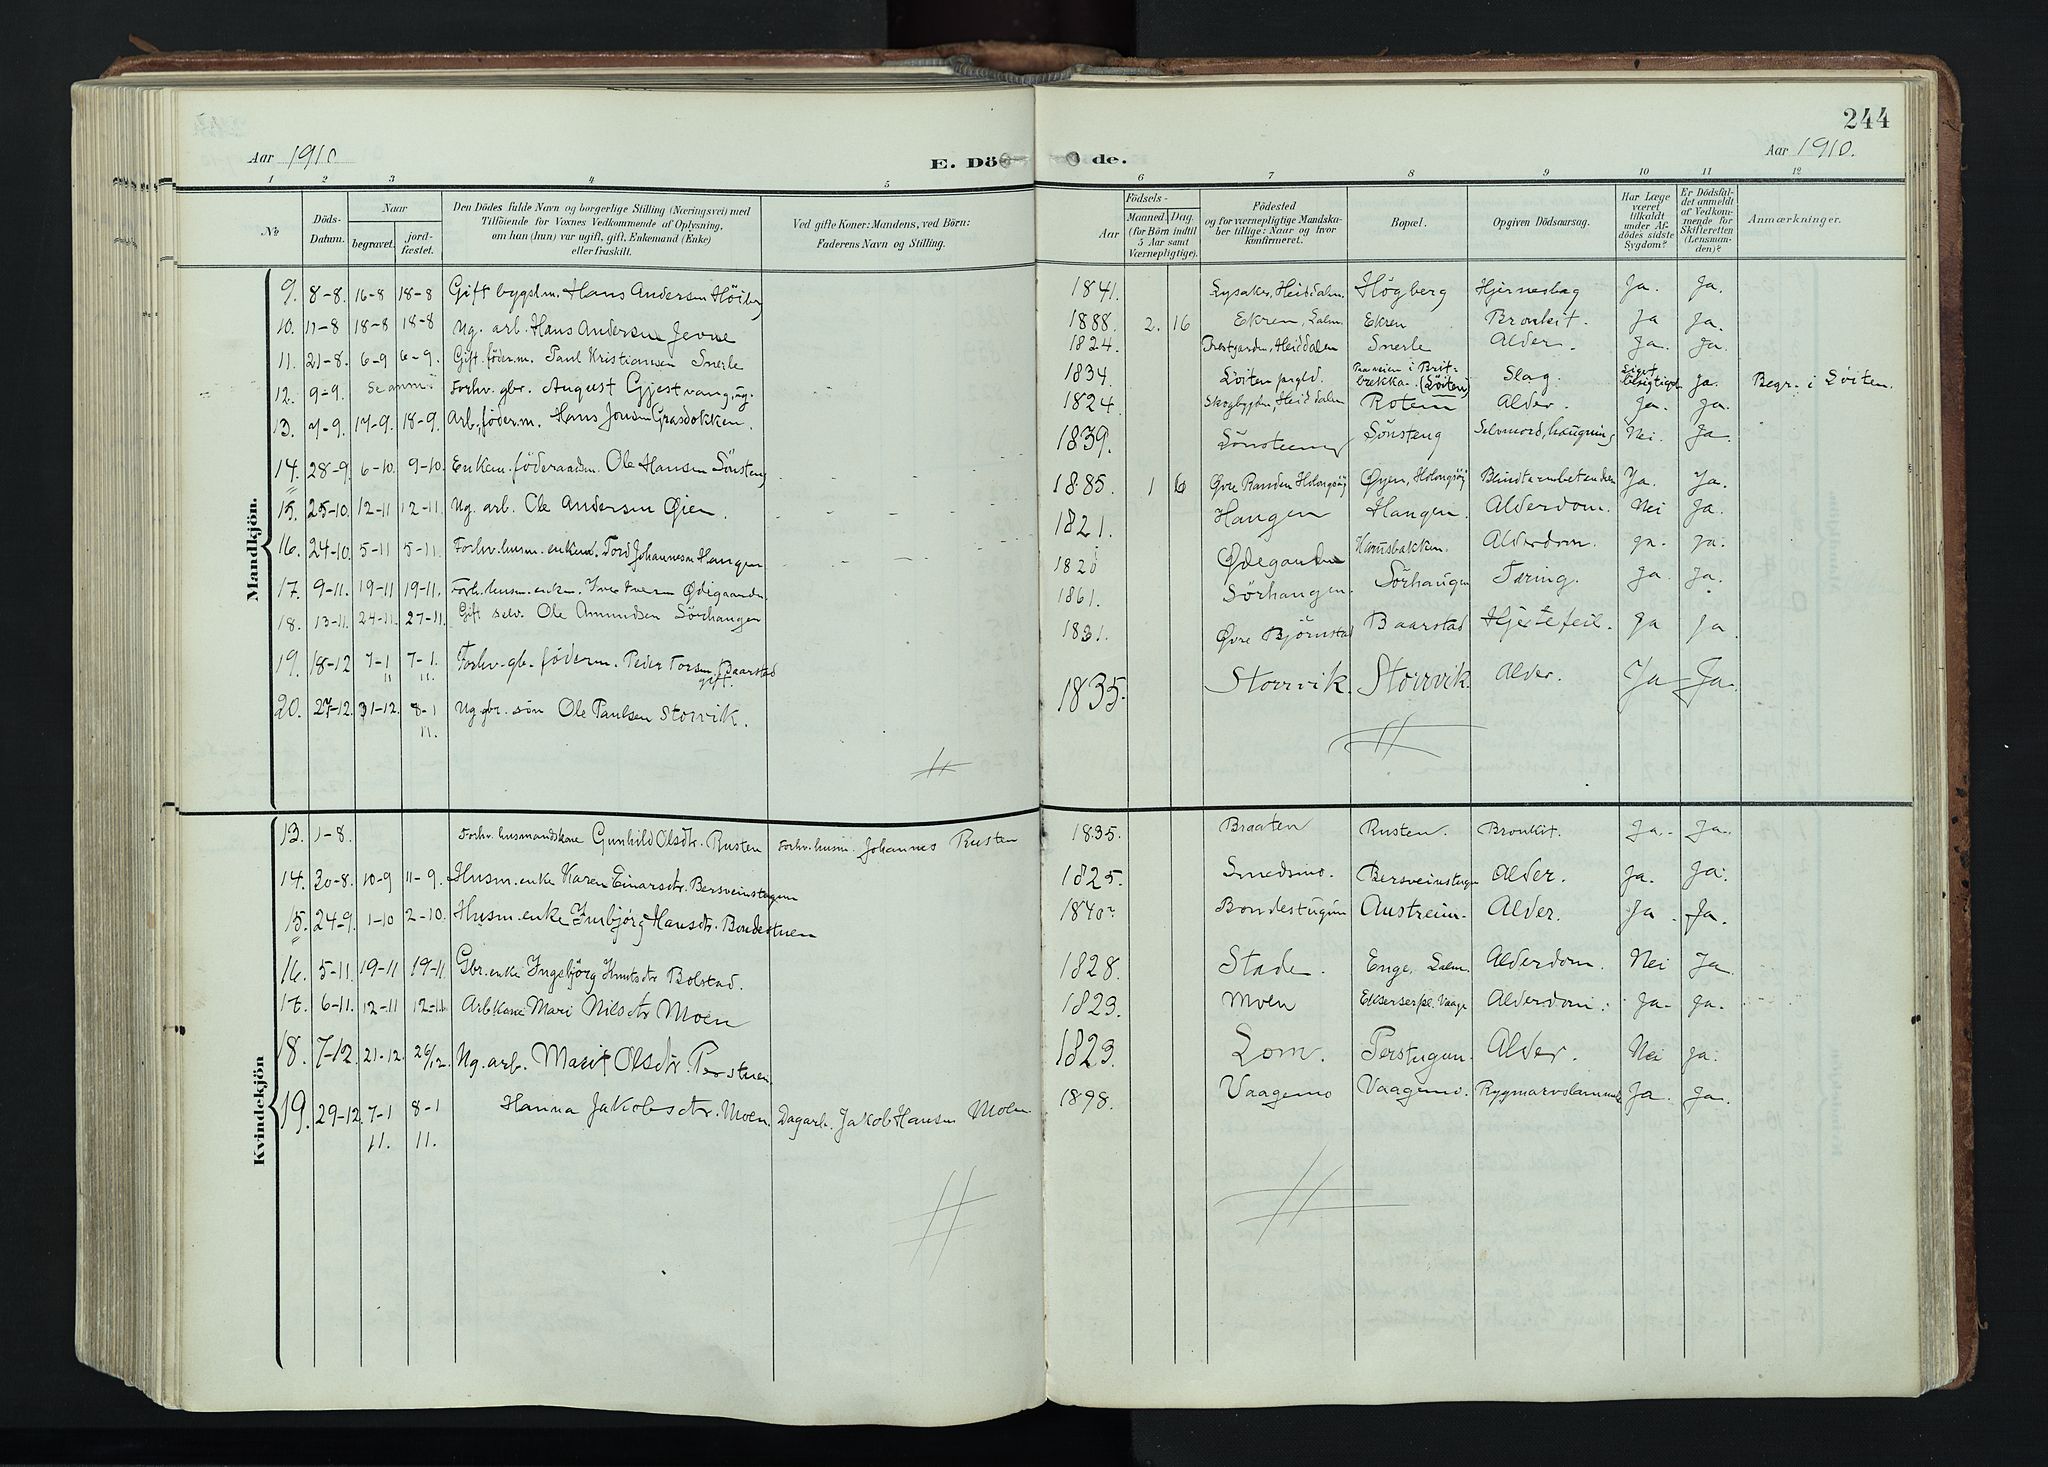 244
Aar 1910
E. Döde.
Aar 1910.
1 2 3 4 5 6 7 8 9 10 11 12
No
Döds-Datum.
Naar
begravet.
jord-fæstet.
Den Dödes fulde Navn og borgerlige Stilling (Næringsvei) med
Tilföiende for Voxnes Vedkommende af Oplysning,
om han (hun) var ugift, gift, Enkemand (Enke)
eller fraskilt.
Ved gifte Koner: Mandens, ved Börn:
Faderens Navn og Stilling.
Födsels-
Aar
Maaned. Dag.
(for Börn indtil
5 Aar samt
Værnepligtige).
Födested
og for værnepligtige Mandska-
ber tillige: Naar og hvor
konfirmeret.
Bopæl.
Opgiven Dödsaarsag.
Har Læge
været
tilkaldt
under Af-
dödes sidste
Sygdom?
Er Dödsfal-
det anmeldt
af Vedkom-
mende for
Skifteretten
(Lensman-
den)?
Anmærkninger.
Mandkjön.
9. 8-8. 16-8 18-8 Gift bygslm. Hans Andersen Höiberg 1841. Lysaker, Heiddalen. Högberg Hjerneslag Ja. Ja.
10. 17-8 18-8 18-8 Ug. arb. Hans Andersen Jevne 1888. 2. 16 Ekren, Salm. Ekren Bronkit. Ja Ja.
11. 21-8. 6-9 6-9. Gift. föderm. Paul Kristiansen Snerle 1824. Prestgarden, Heiddalen Snerle Alder. Ja. Ja.
12. 9-9. Se anm: Forhv. gbr. August Gjestvang, ug. 1834. Löiten prgld. (Löiten) Slag. Ja. Begr. i Löiten.
13. 7-9. 17-9. 18-9. Arb., föderm. Hans Jonsen Grasdokken. 1824. Skogbygden, Heiddalen Rotem Alder. Ja. Ja.
14. 28-9. 6-10. 9-10. Enkem. föderaadm. Ole Hansen Sönsteng 1839. Sönsteng Selvmord, hængning Nei. Ja.
15. 25-10. 12-11 12-11. Ug. arb. Ole Andersen Øien. 1885. 1 6 Øvre Randen Holongsöy Øyen, Holongsöy Blindtarmbetændelse Ja. Ja.
16. 24-10. 5-11 5-11. Forhv. husm. enkem. Tord Johannesen Haugen 1821. Haugen Haugen. Alderdom. Nei Ja.
17. 9-11. 19-11 19-11. Forh. husm. enkem. Iver Iversen Ødegaarden. 1820 Ødegarden Alderdom. Ja. Ja.
18. 13-11. 24-11. 27-11. Gift selv. Ole Amundsen Sörhaugen 1861. Sörhaugen. Sörhaugen Tæring. Ja. Ja.
19. 18-12 7-1 11 7-1. 11. Forhv. gb. föderm. Peder Torsen Baarstad gift. 1831. Øvre Björnstad Baarstad Hjertefeil. Ja Ja.
20. 27-12. 31-12. 8-1 11. Ug. gbr. sön Ole Paulsen Storvik. 1835. Storvik. Storvik. Alder. Ja Ja.
Kvindekjön
13. 1-8. Forhv. husmandskone Gunhild Olsdtr. Rusten Forhv. husm. Johannes Rusten 1835. Braaten Rusten. Bronkit. Ja. Ja.
14. 30-8. 10-9 11-9. Husm. enke Karen Einarsdtr. Bersveinstugun 1825. Smedsmo. Bersveinstugun Alder. Ja. Ja.
15. 24-9. 1-10 2-10. Husm. enke Imbjörg Hansdtr. Bondestuen 1840. Bondestugun Austreim. Alder. Ja. Ja.
16. 5-11. 19-11 19-11. Gbr. enke Ingebjörg Knutsdtr Bolstad. 1828. Stade. Enge, Salm. Alderdom. Nei Ja
17. 6-11. 12-11 12-11. Arbkone Mari Nilsdtr Moen 1823. Moen Ekserserpl. Vaage Alderdom. Ja. Ja.
18. 7-12. 21-12. 26/12. Ug. arb. Marit Olsdtr. Perstuen. 1823. Lom. Perstugun. Alder. Nei Ja.
19. 29-12. 7-1 11. 8-1 11. Hanna Jakobsdtr. Moen. Dagarb. Jakob Hansen Moen. 1898. Vaagemo Vaagemo. Rygmarvslammelse Ja. Ja.